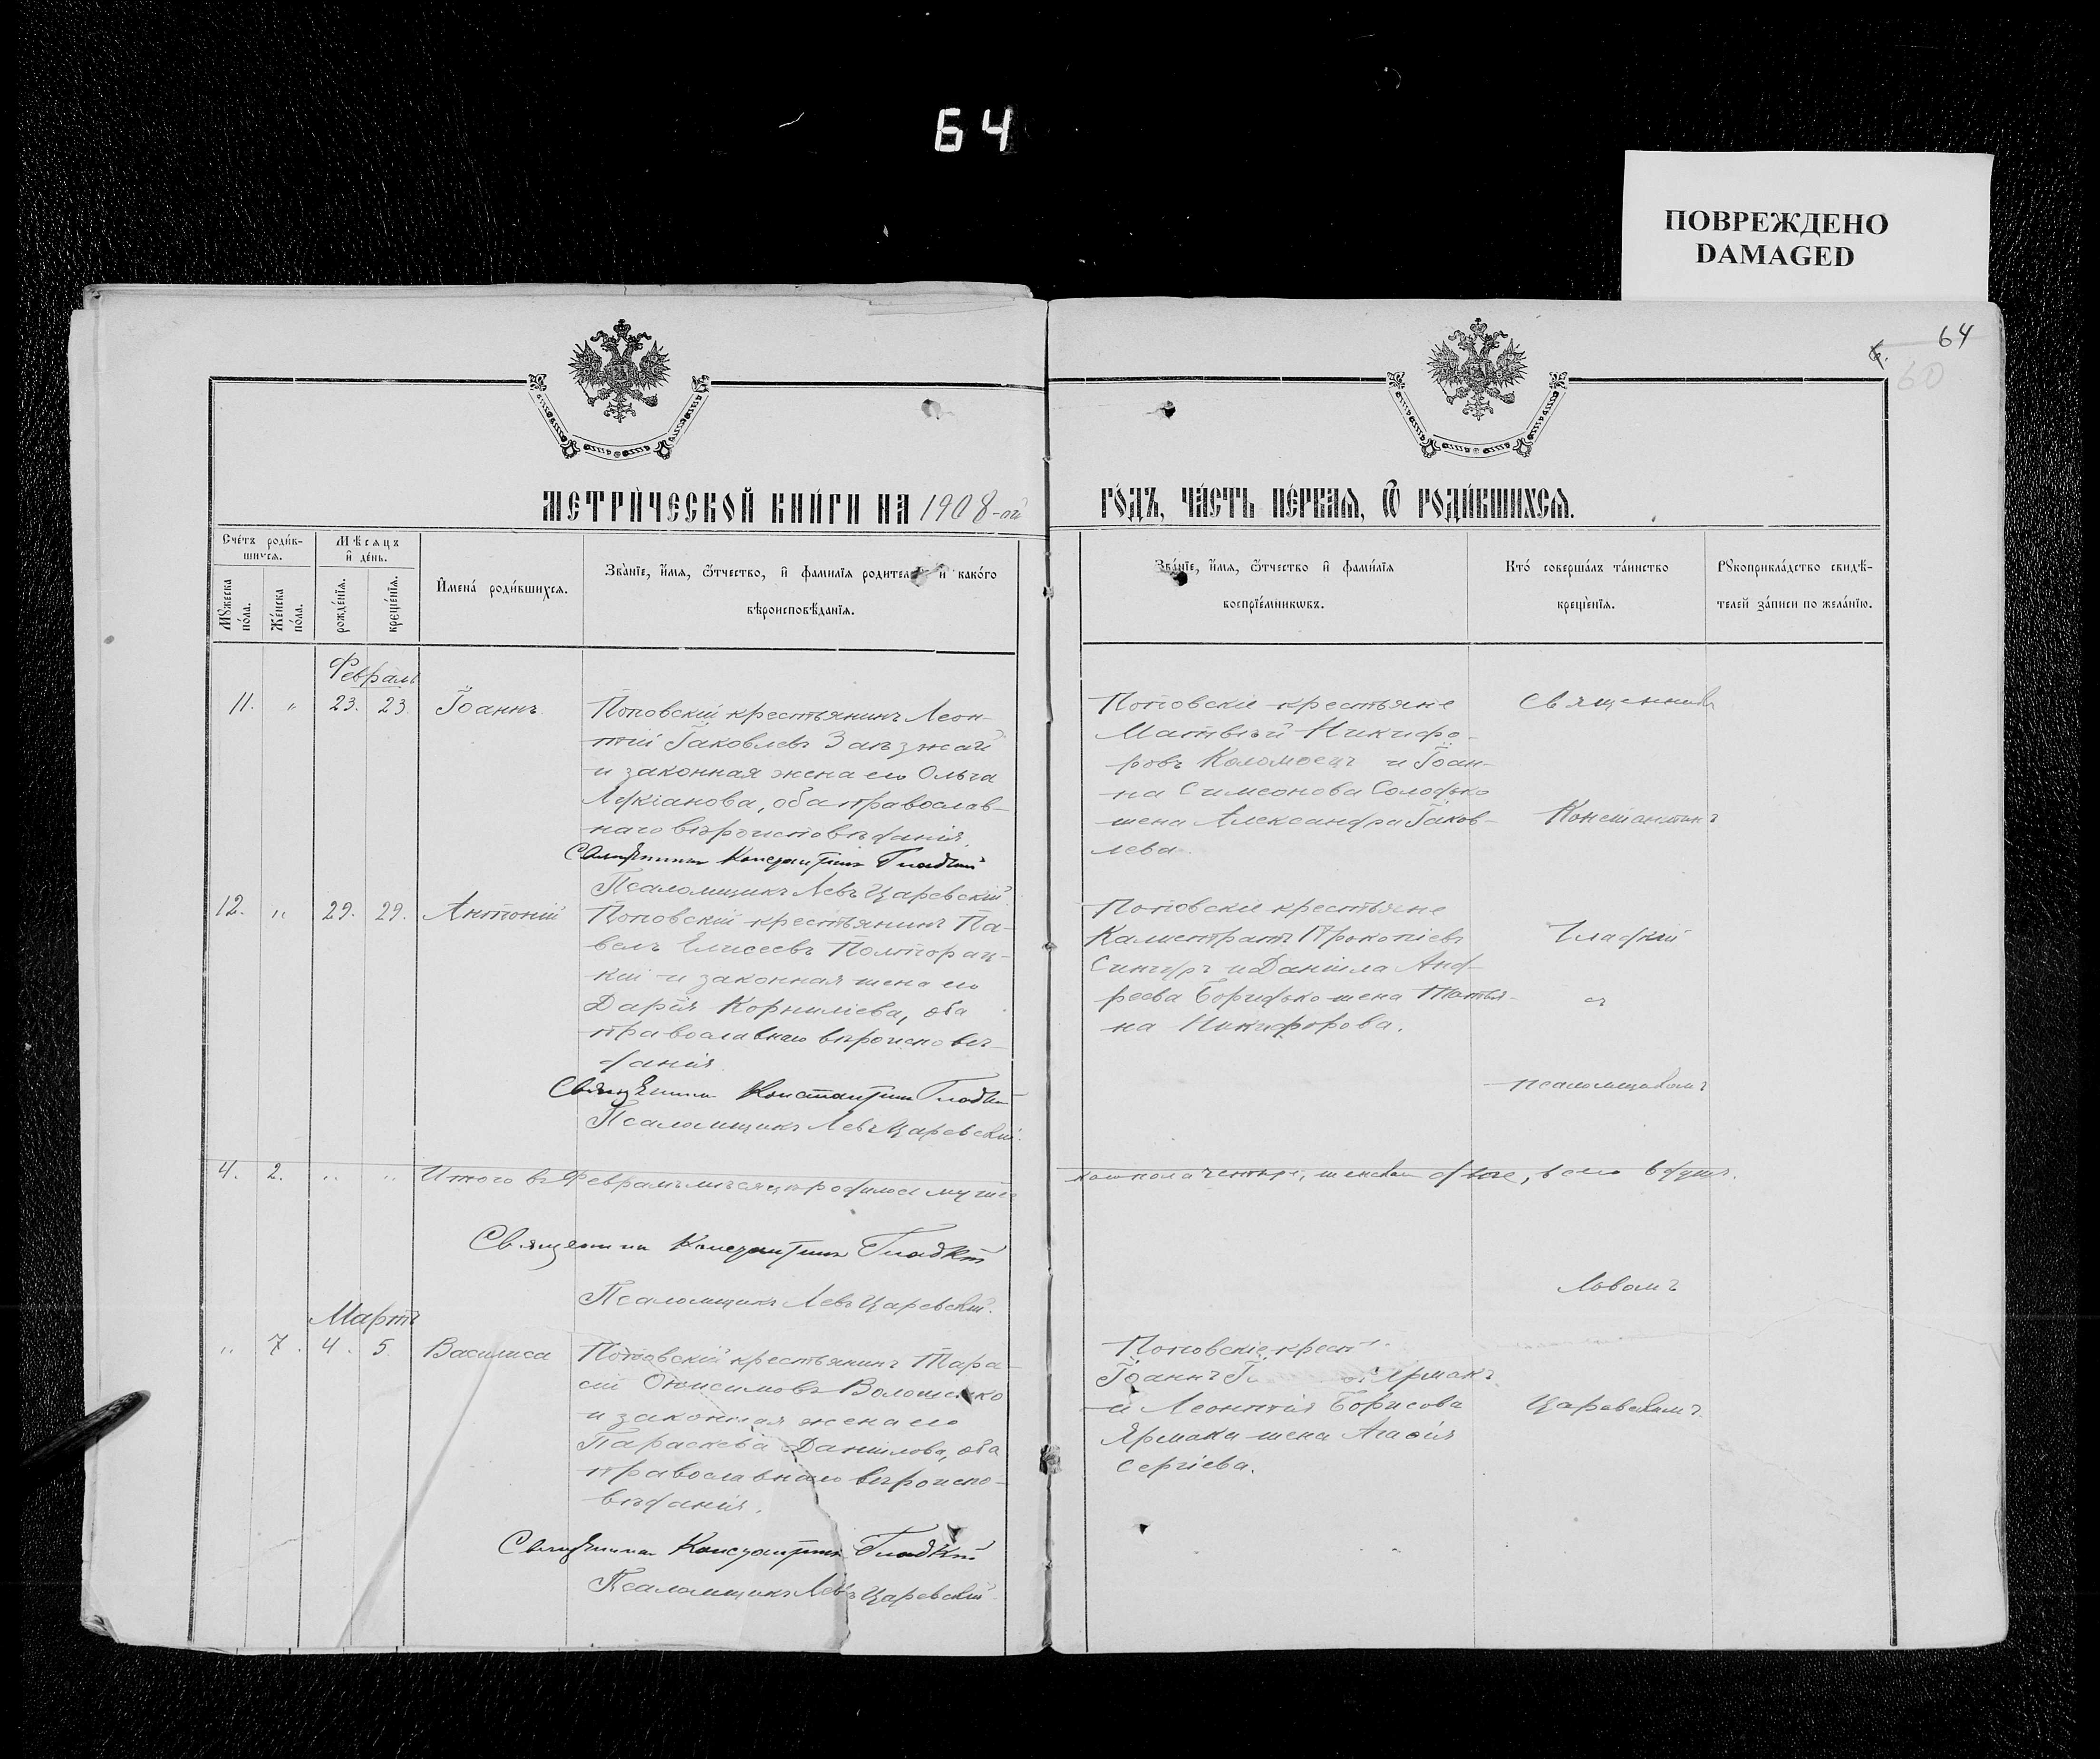 64
ПОВРЕЖДЕНО
DAMAGED
64
6.
60
МЕТРИ́ЧЕСКОЙ КНИ́ГИ НА 1908-ой
ГО́ДЪ, ЧА́СТЬ ПЕ́РВАЯ, Ѿ РОДИ́ВШИХСЯ.
Сче́тъ роди́в-
шихся.
Мѣ́сяцъ
и де́нь.
Мꙋ́жеска по́ла.
Же́нска по́ла.
рожде́нїя.
креще́нїя.
Имена́ роди́вшихся.
Зва́нїе, и́мя, ѻ́тчество, и фами́лїя родителей и како́го
вѣроисповѣ́данїя.
Зва́нїе, и́мя, ѻ́тчество и фами́лїя
воспрїе́мникѡвъ.
Кто́ соверша́лъ та́инство
креще́нїя.
Рꙋкоприкла́дство свидѣ́-
телей за́писи по жела́нїю.
Февраль
11. " 23. 23. Іоаннъ
Поповскій крестьянинъ Леон-
тій Іаковлевъ Заѣзжай
и законная жена его Ольга
Лукіанова, оба православ-
наго вѣроисповѣданія.
Священникъ Константинъ Гладкій
Псаломщикъ Левъ Царевскій
Поповскіе крестьяне
Матвѣй Никифо-
ровъ Коломоецъ и Іоан-
на Симеонова Солодько
жена Александра Іаков-
лева.
Священникъ
Константинъ
12. " 29. 29. Антоній
Поповскій крестьянинъ Па-
велъ Елисеевъ Полторац-
кій и законная жена его
Дарія Корниліева, оба
православнаго вѣроисповѣ-
данія.
Священникъ Константинъ Гладкій
Псаломщикъ Левъ Царевскій
Поповскіе крестьяне
Калистратъ Прокопіевъ
и Даніила Анд-
реева жена Татья-
на Никифорова.
Гладкій
съ
псаломщикомъ
4. 2. " " Итого въ Февралѣ мѣсяцѣ родилось мужес-
каго пола четыре, женскаго двое, всего 6 душъ.
Священникъ Константинъ Гладкій
Псаломщикъ Левъ Царевскій.
Львомъ
Мартъ
" 7. 4. 5. Василиса
Поповскій крестьянинъ Тара-
сій Онисимовъ Волошенко
и законная жена его
Параскева Даніилова, оба
православнаго вѣроиспо-
вѣданія.
Священникъ Константинъ Гладкій
Псаломщикъ Левъ Царевскій
Поповскіе крест
Іоаннъ Ярмакъ
и Леонтія Борисова
Ярмака жена Агафія
Сергіева.
Царевскимъ.